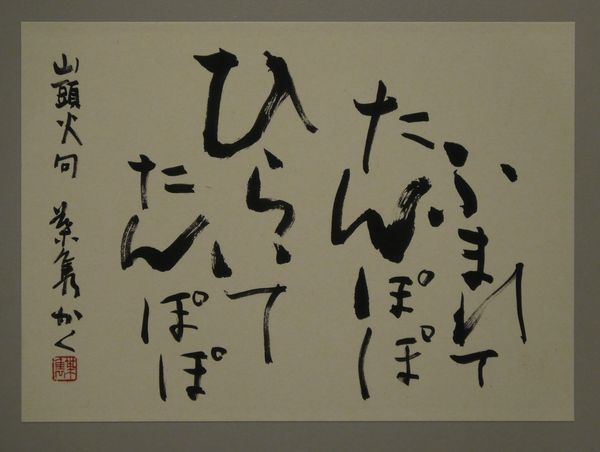 ふまれて
たんぽぽ
ひらいて
たんぽぽ
山頭火句 葉隽かく